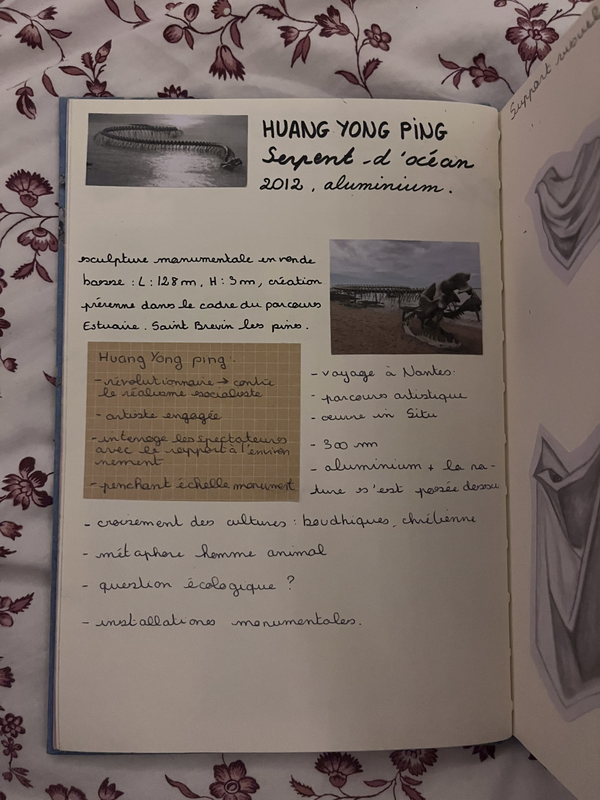 HUANG YONG PiNG
Serpent d'océan
2012, aluminium.
sculpture monumentale en ronde
bosse : L : 128 m, H : 3 m, création
pérenne dans le cadre du parcours
Estuaire. Saint Brevin les pins.
Huang Yong ping :
- révolutionnaire → contre
le réalisme socialiste
- artiste engagée
- interroge les spectateurs
avec le rapport à l'environ
nement
- penchant échelle monument
- voyage à Nantes.
- parcours artistique
- œuvre in Situ
- 300 m
- aluminium + la na-
ture s'est posée dessu
- croisement des cultures : boudhiques, chrétienne
- métaphore homme animal
- question écologique ?
- installations monumentales.
Support visuel